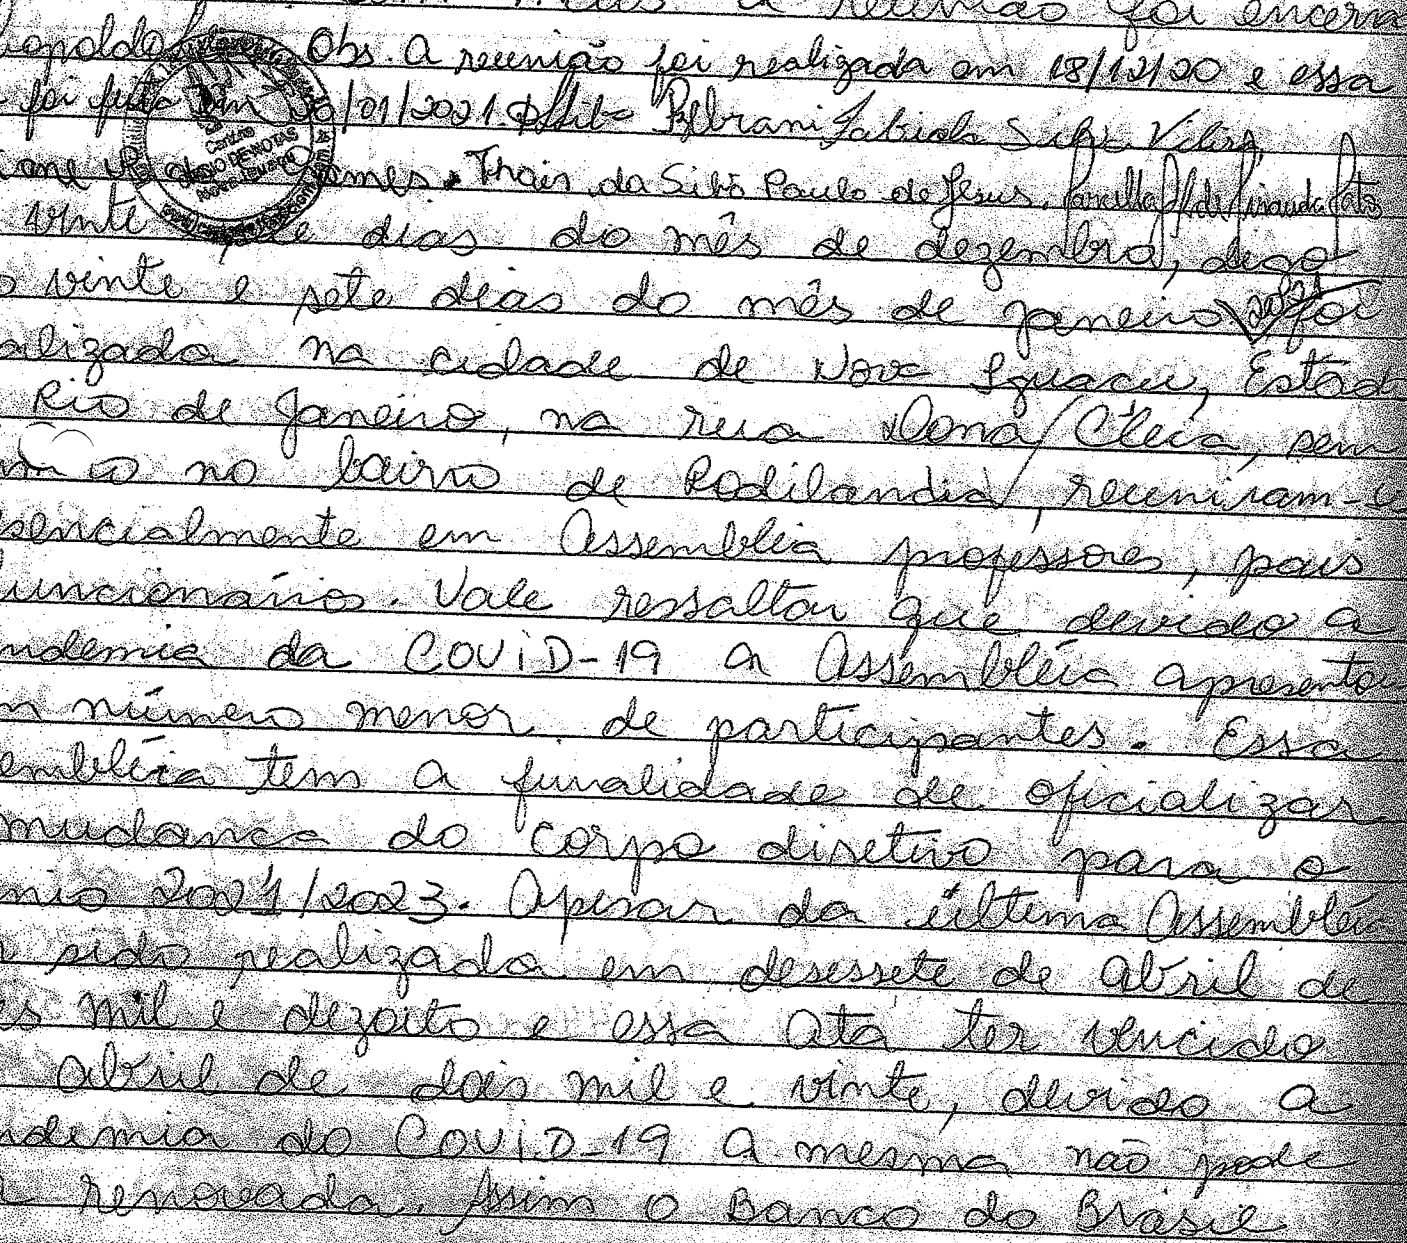 a reunião foi encerra
Obs. A reunião foi realizada em 18/12/20 e essa
foi feita em /01/2021. Fabiola Silva
Gomes. Thais da Silva Paulo de Jesus,
vinte e dias do mês de dezembro, digo
vinte e sete dias do mês de janeiro 2021 foi
alizada na cidade de Nova Iguacu, Estad
Rio de Janeiro, na rua Dona Cleia, sem
no bairro de Rodilandia, reuniram-s
sencialmente em Assembléia professores, pais
funcionários. Vale ressaltar que devido a
ndemia da COVID-19 a Assembléia apresento
m número menor de participantes. Essa
embléia tem a finalidade de oficializar
mudanca do corpo diretivo para o
nio 2021/2023. Apesar da última Assembléia
sido realizada em desessete de Abril de
is mil e dezoito e essa Ata ter vencido
Abril de dois mil e vinte, devido a
ndemia do COVID-19 a mesma não pode
renovada. Assim o Banco do Brasil